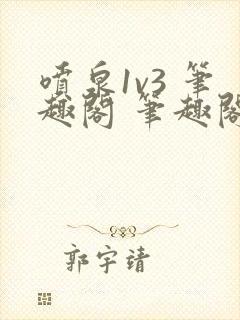 噴泉1v3 筆
趣閣 筆趣閣
郭宇靖